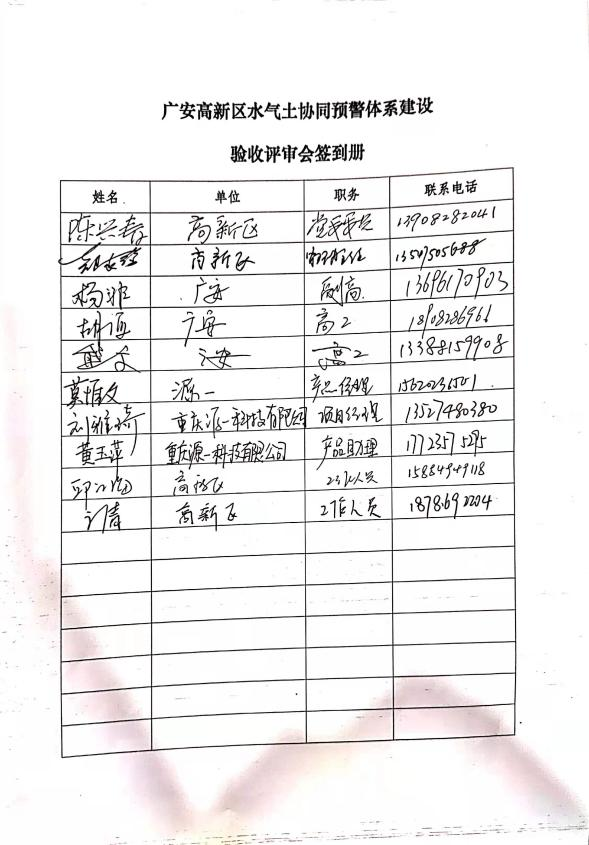 广安高新区水气土协同预警体系建设
验收评审会签到册
姓名 单位 职务 联系电话
陈兴春 高新区 党委委员 13908282041
高新区 13507505688
杨非 广安 副高 13696170903
胡恒 广安 高工 18908286961
广安 高工 13388159908
莫惟文 源一 产品经理
刘雅琦 重庆源一科技有限公司 项目经理 13527480380
黄玉萍 重庆源一科技有限公司 产品助理 17723575295
高新区 工作人员 15884949118
高新区 工作人员